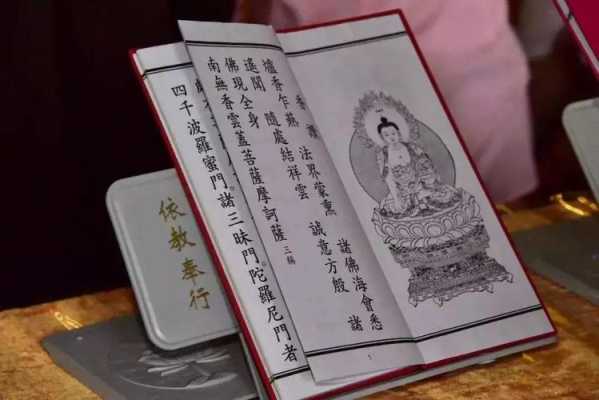 香讚
爐香乍爇 法界蒙熏 諸佛海會悉
遙聞 隨處結祥雲 誠意方殷 諸
佛現全身
南無香雲蓋菩薩摩訶薩 三稱
四千波羅蜜門諸三昧門陀羅尼門者
依教奉行